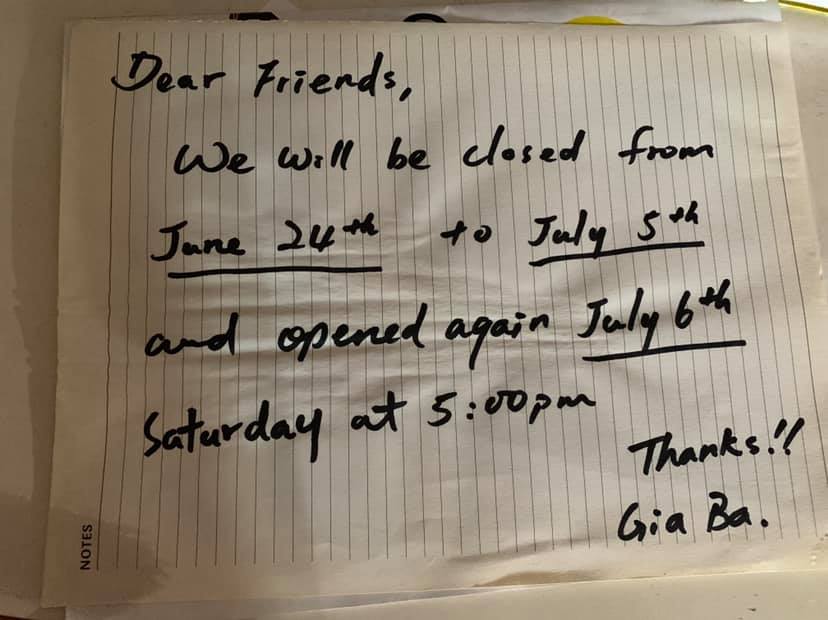 Dear Friends,
We will be closed from
June 24th to July 5th
and opened again July 6th
Saturday at 5:00pm
Thanks!!
Gia Ba.
NOTES